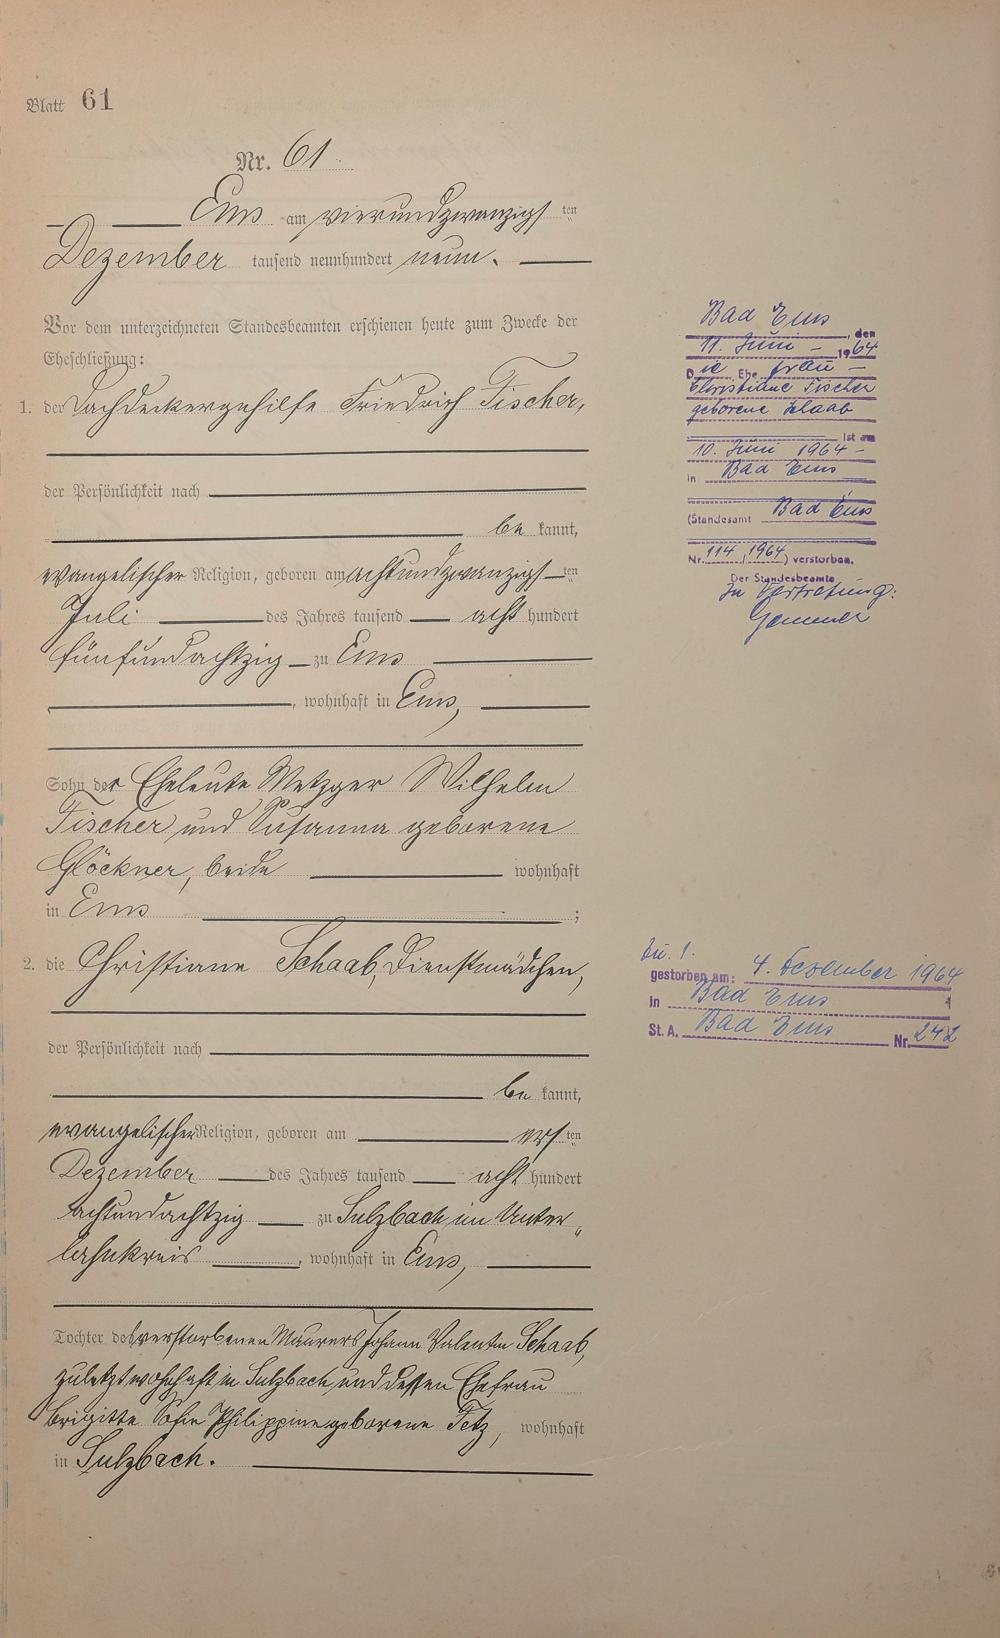 Blatt 61
Nr. 61.
Ems am vierundzwanzigsten
Dezember tausend neunhundert neun.
Vor dem unterzeichneten Standesbeamten erschienen heute zum Zwecke der
Eheschließung:
1. der Dachdeckergehilfe Friedrich Fischer,
der Persönlichkeit nach
bekannt,
evangelischer Religion, geboren am achtundzwanzigsten
Juli des Jahres tausend acht hundert
fünfundachtzig zu Ems
, wohnhaft in Ems,
Sohn der Eheleute Metzger Wilhelm
Fischer und Susanna geborene
Glöckner, beide wohnhaft
in Ems ;
2. die Christiane Schaab, Dienstmädchen,
der Persönlichkeit nach
bekannt,
evangelischer Religion, geboren am ersten
Dezember des Jahres tausend acht hundert
achtundachtzig zu Sulzbach im Unter„
lahnkreis , wohnhaft in Ems,
Tochter des verstorbenen Maurers Johann Valentin Schaab,
zuletzt wohnhaft in Sulzbach und dessen Ehefrau
Brigitte Sofie Philippine geborene Fetz, wohnhaft
in Sulzbach.
Bad Ems , den
11. Juni – 1964
Die Ehefrau –
Christiane Fischer
geborene Schaab
ist am
10. Juni 1964 –
in Bad Ems
(Standesamt Bad Ems
Nr. 114/1964) verstorben.
Der Standesbeamte
In Vertretung:
Zu. 1.
gestorben am: 4. Dezember 1964
in Bad Ems
St. A. Bad Ems Nr. 242